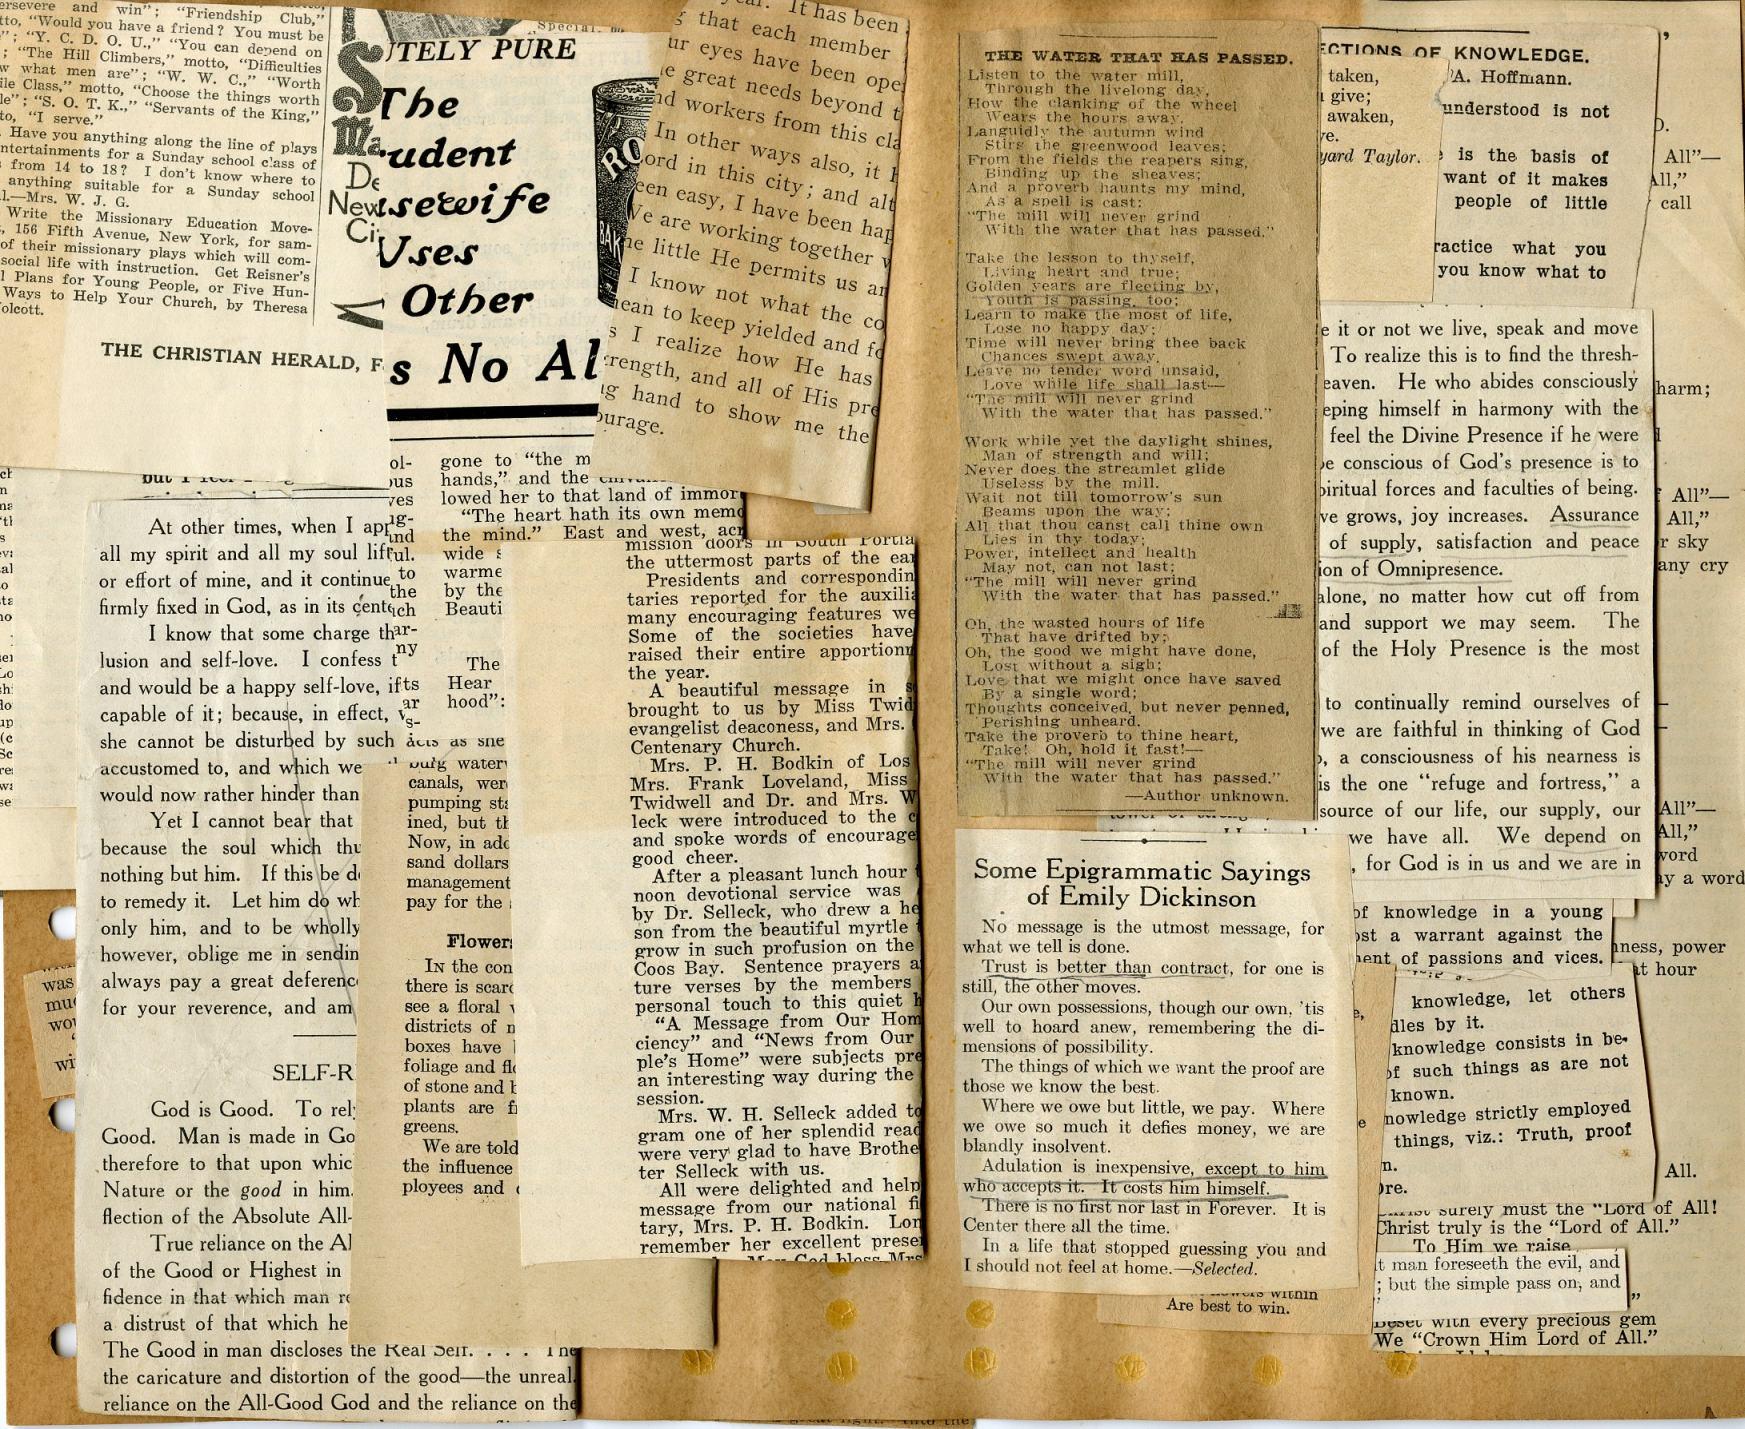 ersevere and win"; "Friendship Club,"
to, "Would you have a friend? You must be
"; "Y. C. D. O. U.," "You can depend on
; "The Hill Climbers," motto, "Difficulties
w what men are"; "W. W. C.," "Worth
ile Class," motto, "Choose the things worth
le"; "S. O. T. K.," "Servants of the King,"
to, "I serve."
Have you anything along the line of plays
ntertainments for a Sunday school class of
from 14 to 18? I don't know where to
anything suitable for a Sunday school
l.—Mrs. W. J. G.
Write the Missionary Education Move-
, 156 Fifth Avenue, New York, for sam-
of their missionary plays which will com-
social life with instruction. Get Reisner's
l Plans for Young People, or Five Hun-
Ways to Help Your Church, by Theresa
olcott.
THE CHRISTIAN HERALD, F
De
New
Ci
UTELY PURE
The
udent
usewife
Uses
Other
s No Al
RO
BAK
year. It has been
g that each member
ur eyes have been ope
e great needs beyond t
nd workers from this cla
In other ways also, it h
ord in this city; and alt
een easy, I have been hap
We are working together w
he little He permits us an
I know not what the co
mean to keep yielded and fo
s I realize how He has
trength, and all of His pre
g hand to show me the
ourage.
gone to "the m
hands," and the
lowed her to that land of immor
"The heart hath its own memo
the mind." East and west, acr
wide s
warme
by the
Beauti
The
Hear
hood":
At other times, when I app
all my spirit and all my soul lift
or effort of mine, and it continue
firmly fixed in God, as in its cente
I know that some charge th
lusion and self-love. I confess t
and would be a happy self-love, if
capable of it; because, in effect, w
she cannot be disturbed by such acts as she
accustomed to, and which we
would now rather hinder than
Yet I cannot bear that
because the soul which thu
nothing but him. If this be de
to remedy it. Let him do wh
only him, and to be wholly
however, oblige me in sendin
always pay a great deferenc
for your reverence, and am
SELF-R
God is Good. To rely
Good. Man is made in Go
therefore to that upon whic
Nature or the good in him.
flection of the Absolute All-
True reliance on the Al
of the Good or Highest in
fidence in that which man re
a distrust of that which he
The Good in man discloses the Real Self. . . . The
the caricature and distortion of the good—the unreal.
reliance on the All-Good God and the reliance on the
burg water
canals, wer
pumping sta
ined, but th
Now, in add
sand dollars
management
pay for the
Flower
IN the con
there is scarc
see a floral
districts of m
boxes have
foliage and flo
of stone and b
plants are f
greens.
We are told
the influence
ployees and
mission doors in South Portla
the uttermost parts of the ear
Presidents and correspondin
taries reported for the auxilia
many encouraging features we
Some of the societies have
raised their entire apportionm
the year.
A beautiful message in s
brought to us by Miss Twid
evangelist deaconess, and Mrs.
Centenary Church.
Mrs. P. H. Bodkin of Los
Mrs. Frank Loveland, Miss
Twidwell and Dr. and Mrs. W
leck were introduced to the c
and spoke words of encourage
good cheer.
After a pleasant lunch hour
noon devotional service was
by Dr. Selleck, who drew a he
son from the beautiful myrtle t
grow in such profusion on the
Coos Bay. Sentence prayers a
ture verses by the members
personal touch to this quiet h
"A Message from Our Hom
ciency" and "News from Our
ple's Home" were subjects pre
an interesting way during the
session.
Mrs. W. H. Selleck added to
gram one of her splendid read
were very glad to have Brothe
ter Selleck with us.
All were delighted and help
message from our national fi
tary, Mrs. P. H. Bodkin. Lon
remember her excellent prese
May God bless Mrs
THE WATER THAT HAS PASSED.
Listen to the water mill,
Through the livelong day,
How the clanking of the wheel
Wears the hours away.
Languidly the autumn wind
Stirs the greenwood leaves;
From the fields the reapers sing,
Binding up the sheaves;
And a proverb haunts my mind,
As a spell is cast:
"The mill will never grind
With the water that has passed."
Take the lesson to thyself,
Living heart and true;
Golden years are fleeting by,
Youth is passing, too;
Learn to make the most of life,
Lose no happy day;
Time will never bring thee back
Chances swept away.
Leave no tender word unsaid,
Love while life shall last—
"The mill will never grind
With the water that has passed."
Work while yet the daylight shines,
Man of strength and will;
Never does the streamlet glide
Useless by the mill.
Wait not till tomorrow's sun
Beams upon the way;
All that thou canst call thine own
Lies in thy today;
Power, intellect and health
May not, can not last;
"The mill will never grind
With the water that has passed."
Oh, the wasted hours of life
That have drifted by;
Oh, the good we might have done,
Lost without a sigh;
Love that we might once have saved
By a single word;
Thoughts conceived, but never penned,
Perishing unheard.
Take the proverb to thine heart,
Take! Oh, hold it fast!—
"The mill will never grind
With the water that has passed."
—Author unknown.
Some Epigrammatic Sayings
of Emily Dickinson
No message is the utmost message, for
what we tell is done.
Trust is better than contract, for one is
still, the other moves.
Our own possessions, though our own, 'tis
well to hoard anew, remembering the di-
mensions of possibility.
The things of which we want the proof are
those we know the best.
Where we owe but little, we pay. Where
we owe so much it defies money, we are
blandly insolvent.
Adulation is inexpensive, except to him
who accepts it. It costs him himself.
There is no first nor last in Forever. It is
Center there all the time.
In a life that stopped guessing you and
I should not feel at home.—Selected.
Are best to win.
ECTIONS OF KNOWLEDGE.
A. Hoffmann.
understood is not
is the basis of
want of it makes
people of little
ractice what you
you know what to
taken,
give;
awaken,
ve.
yard Taylor.
e it or not we live, speak and move
To realize this is to find the thresh-
eaven. He who abides consciously
eping himself in harmony with the
feel the Divine Presence if he were
be conscious of God's presence is to
piritual forces and faculties of being.
ve grows, joy increases. Assurance
of supply, satisfaction and peace
ion of Omnipresence.
alone, no matter how cut off from
and support we may seem. The
of the Holy Presence is the most
to continually remind ourselves of
we are faithful in thinking of God
, a consciousness of his nearness is
is the one "refuge and fortress," a
source of our life, our supply, our
we have all. We depend on
, for God is in us and we are in
of knowledge in a young
st a warrant against the
ent of passions and vices.
knowledge, let others
dles by it.
knowledge consists in be-
of such things as are not
known.
nowledge strictly employed
things, viz.: Truth, proof
n.
ore.
All"—
All,"
call
harm;
All"—
All,"
r sky
any cry
All"—
All,"
word
ay a word
ness, power
at hour
All.
surely must the "Lord of All!
Christ truly is the "Lord of All."
To Him we raise
t man foreseeth the evil, and
; but the simple pass on, and
Beset with every precious gem
We "Crown Him Lord of All."